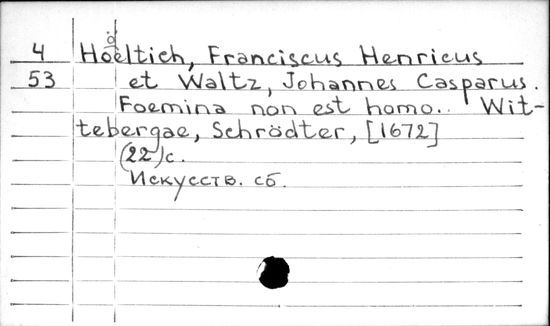 ö
4 Hoeltich, Franciscus Henricus
53 et Waltz, Johannes Casparus.
Foemina non est homo.. Wit-
tebergae, Schrödter, [1672]
(22)c.
Искусств. сб.